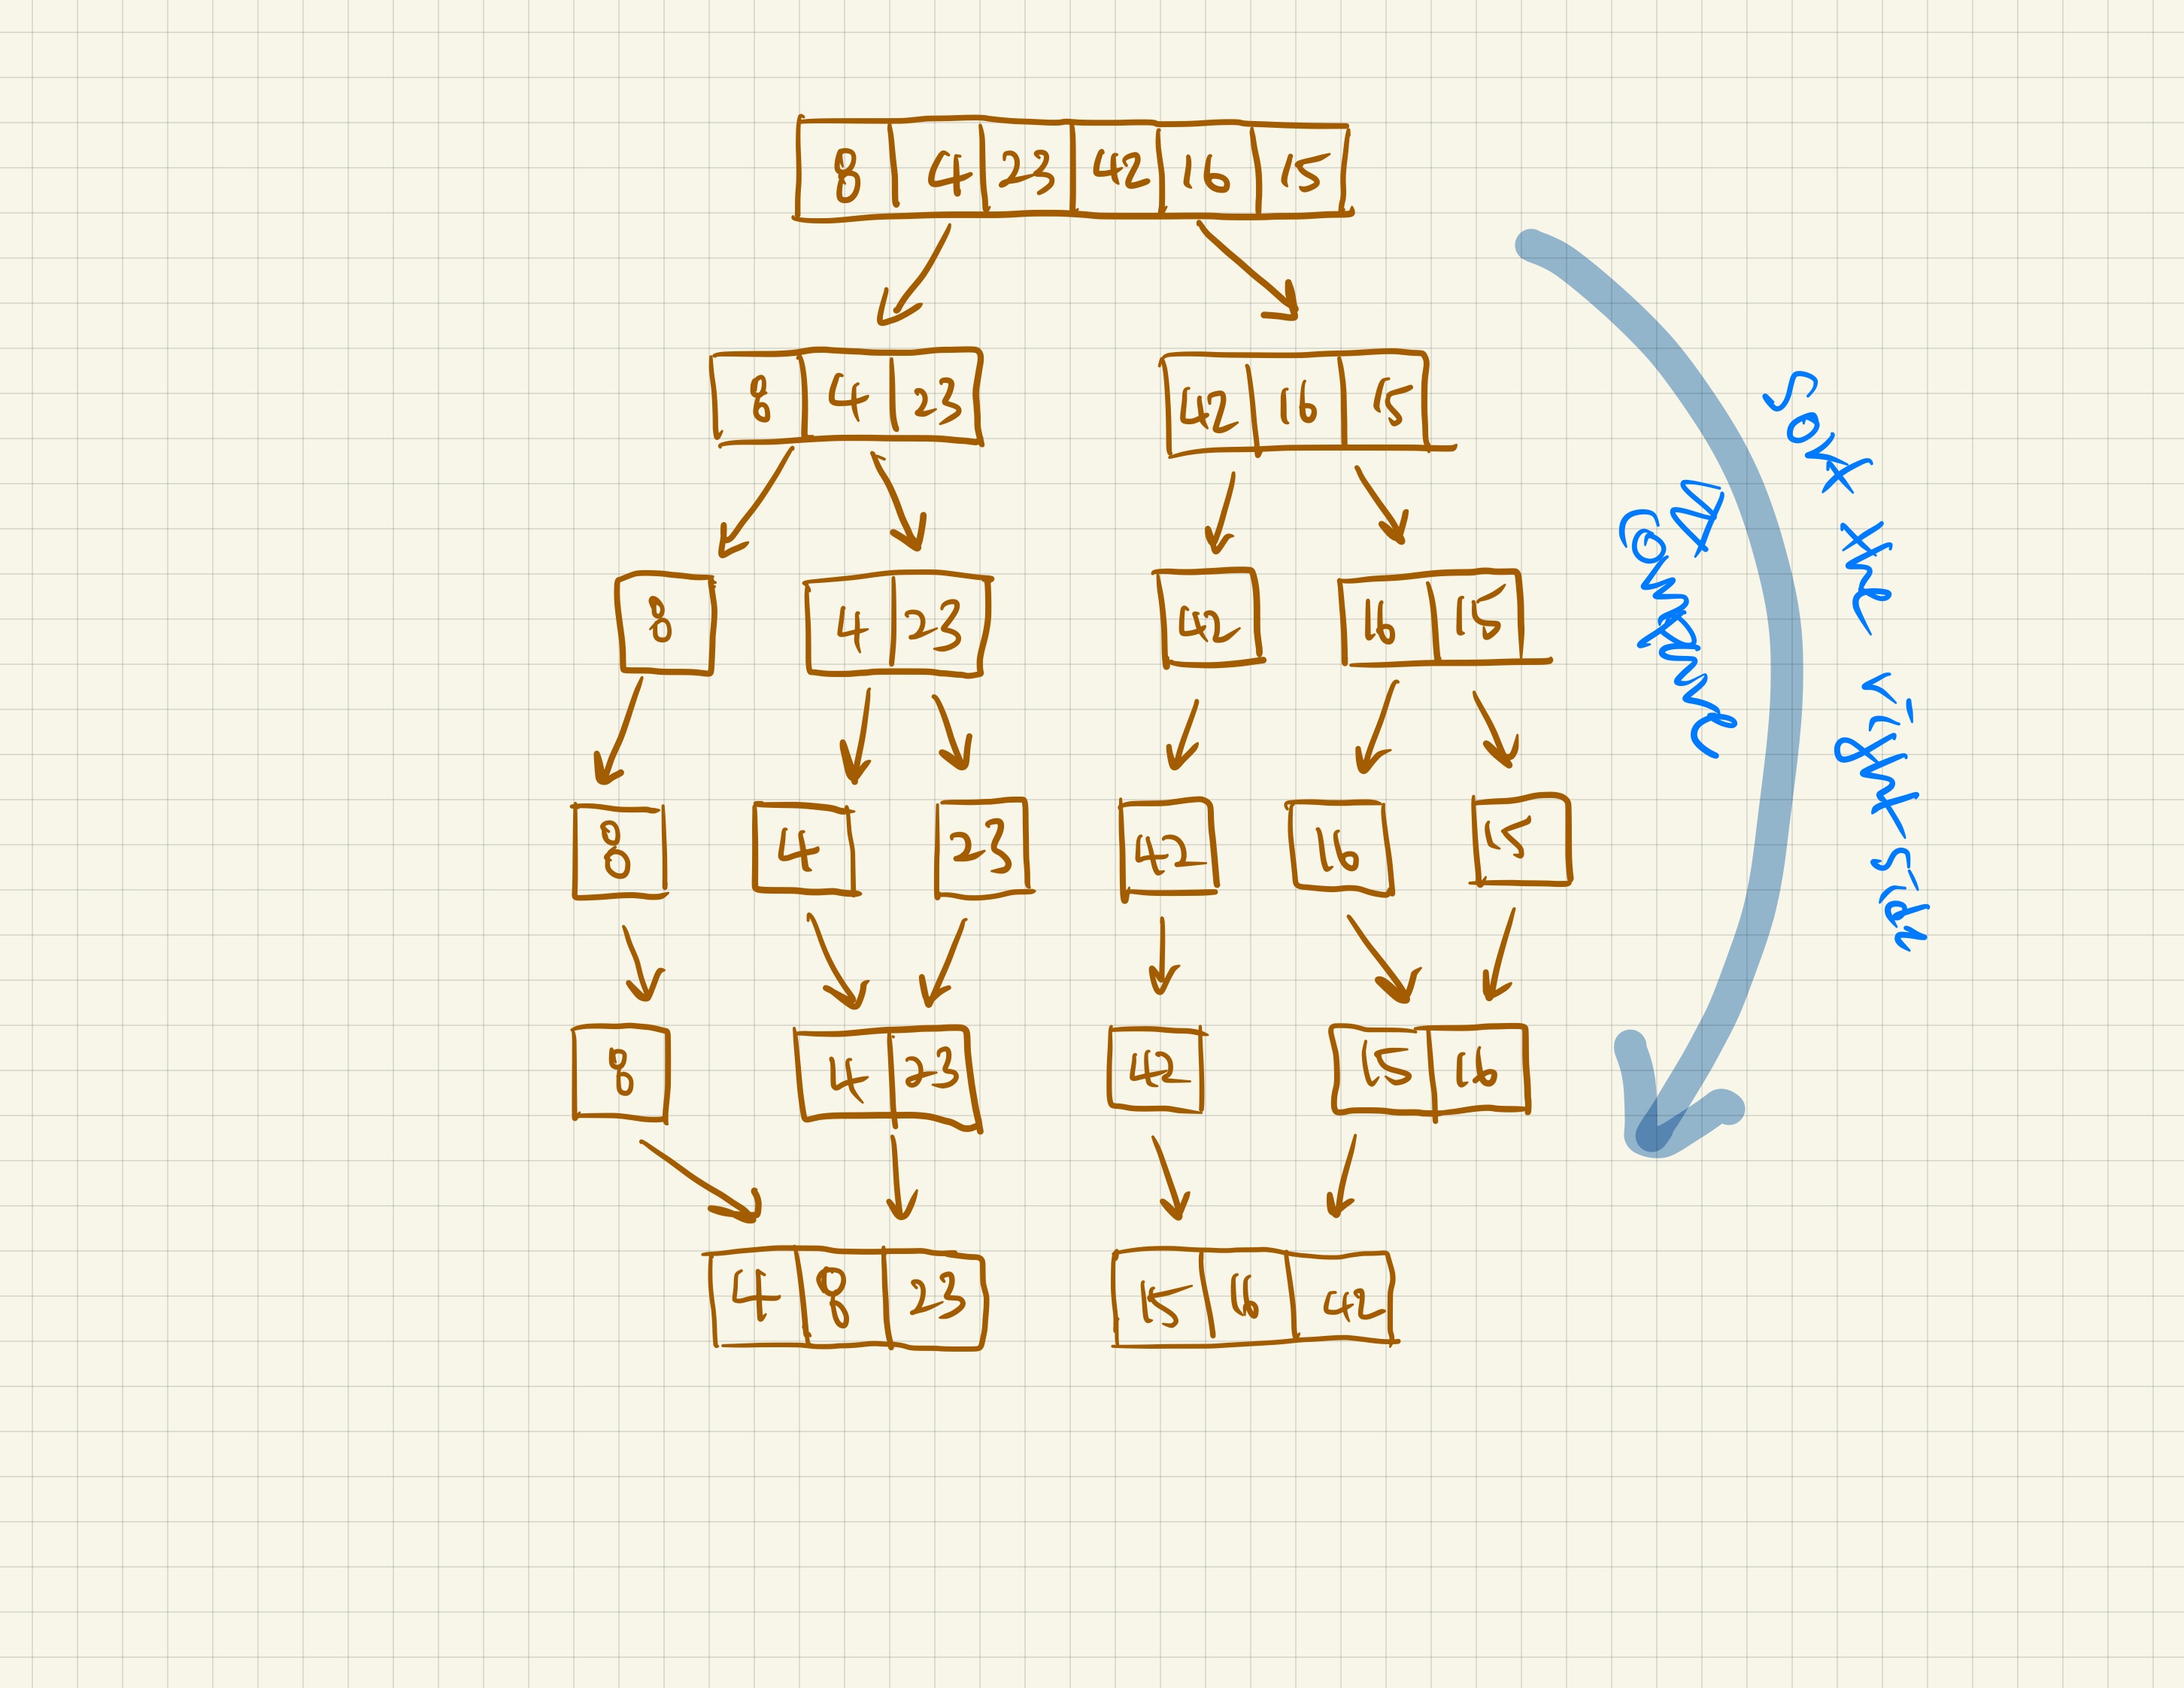 8 4 23 42 16 15
8 4 23
42 16 15
8
4 23
42
16 15
8
4
23
42
16
15
8
4 23
42
15 16
4 8 23
15 16 42
Sort the right side
As